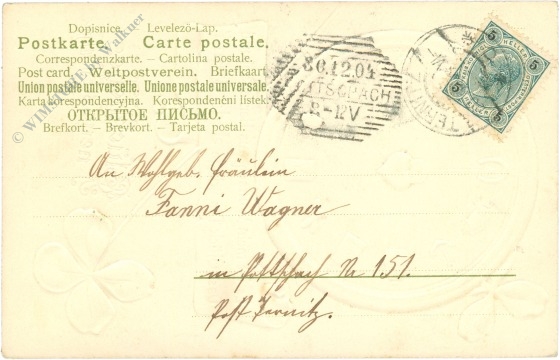 Dopisnice. Levelező-Lap.
Postkarte. Carte postale.
Correspondenzkarte. – Cartolina postale.
Post card. Weltpostverein. Briefkaart.
Union postale universelle. Unione postale universale.
Karta korespondencyjna. Korespondenční lístek.
ОТКРЫТОЕ ПИСЬМО.
Brefkort. – Brevkort. – Tarjeta postal.
30.12.04
8–12V
5 5
HELLER
5 5
An Wohlgeb. Fräulein
Fanni Wagner
in Pottschach Nr 151.
Post Ternitz.